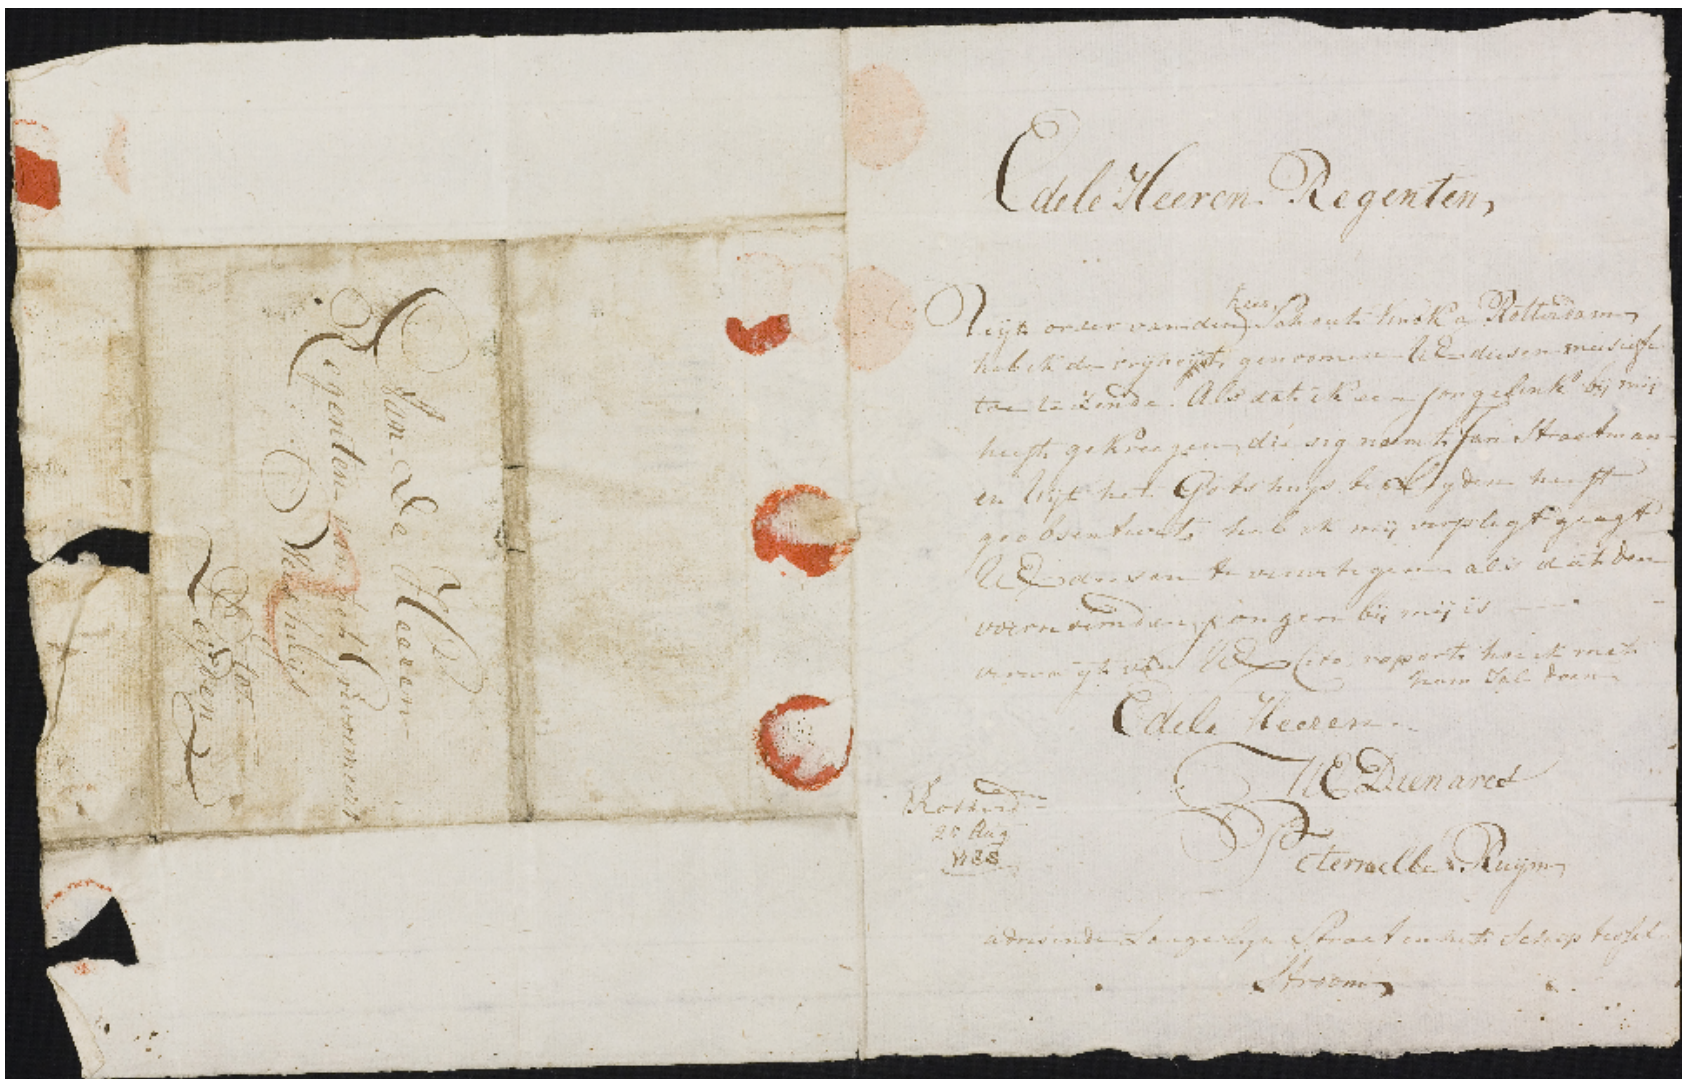 Aan De Heeren
Regenten van het Gereformeert
Weeshuijs
tot
Leijden
Edele Heeren Regenten,
heer
Uijt order van den Schout Knok a Rotterdam
heb ik de vrijheijt genoomen UE deesen missiefe
toe te zende. Als dat ik een jongelink bij mij
heeft gekreegen die sig noemt Jan Straatman
en Uijt het Gotshuys te Lyden heeft
geobsenteert heb ik mij verpligt geagt
UE deesen te verwitigen als dat den
voernoemden jongen bij mij is
verwagte van UE Cito rapport hoe ik met
hem sal doen
Edele Heeren
UE Dienares
Peternella Ruijm
Rotterdam
25 Aug
1788
adresende Straat in het Schip tessel
Stroom